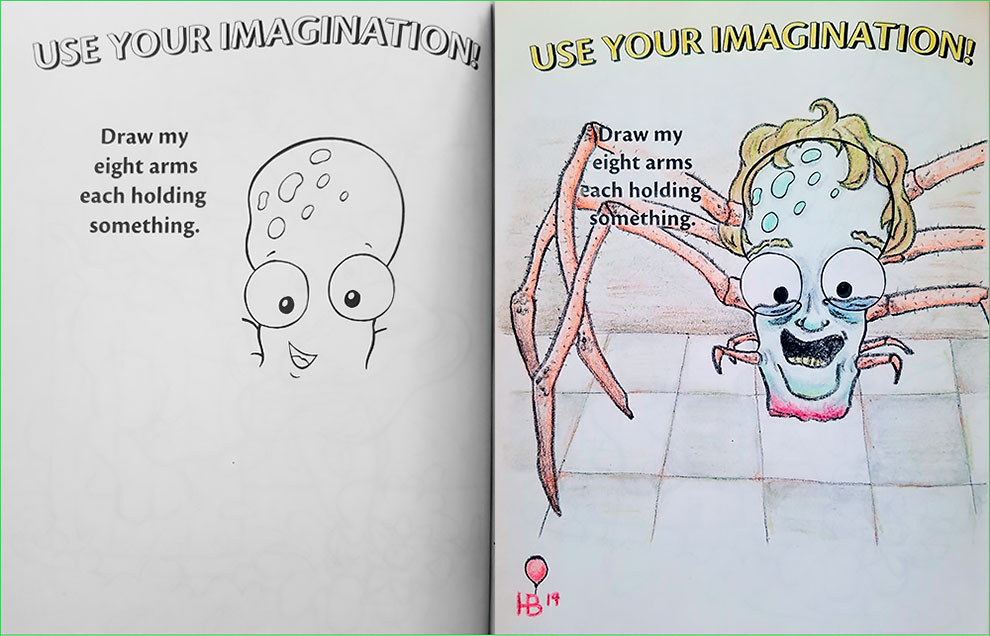 USE YOUR IMAGINATION!
Draw my
eight arms
each holding
something.
USE YOUR IMAGINATION!
Draw my
eight arms
each holding
something.
HB 19